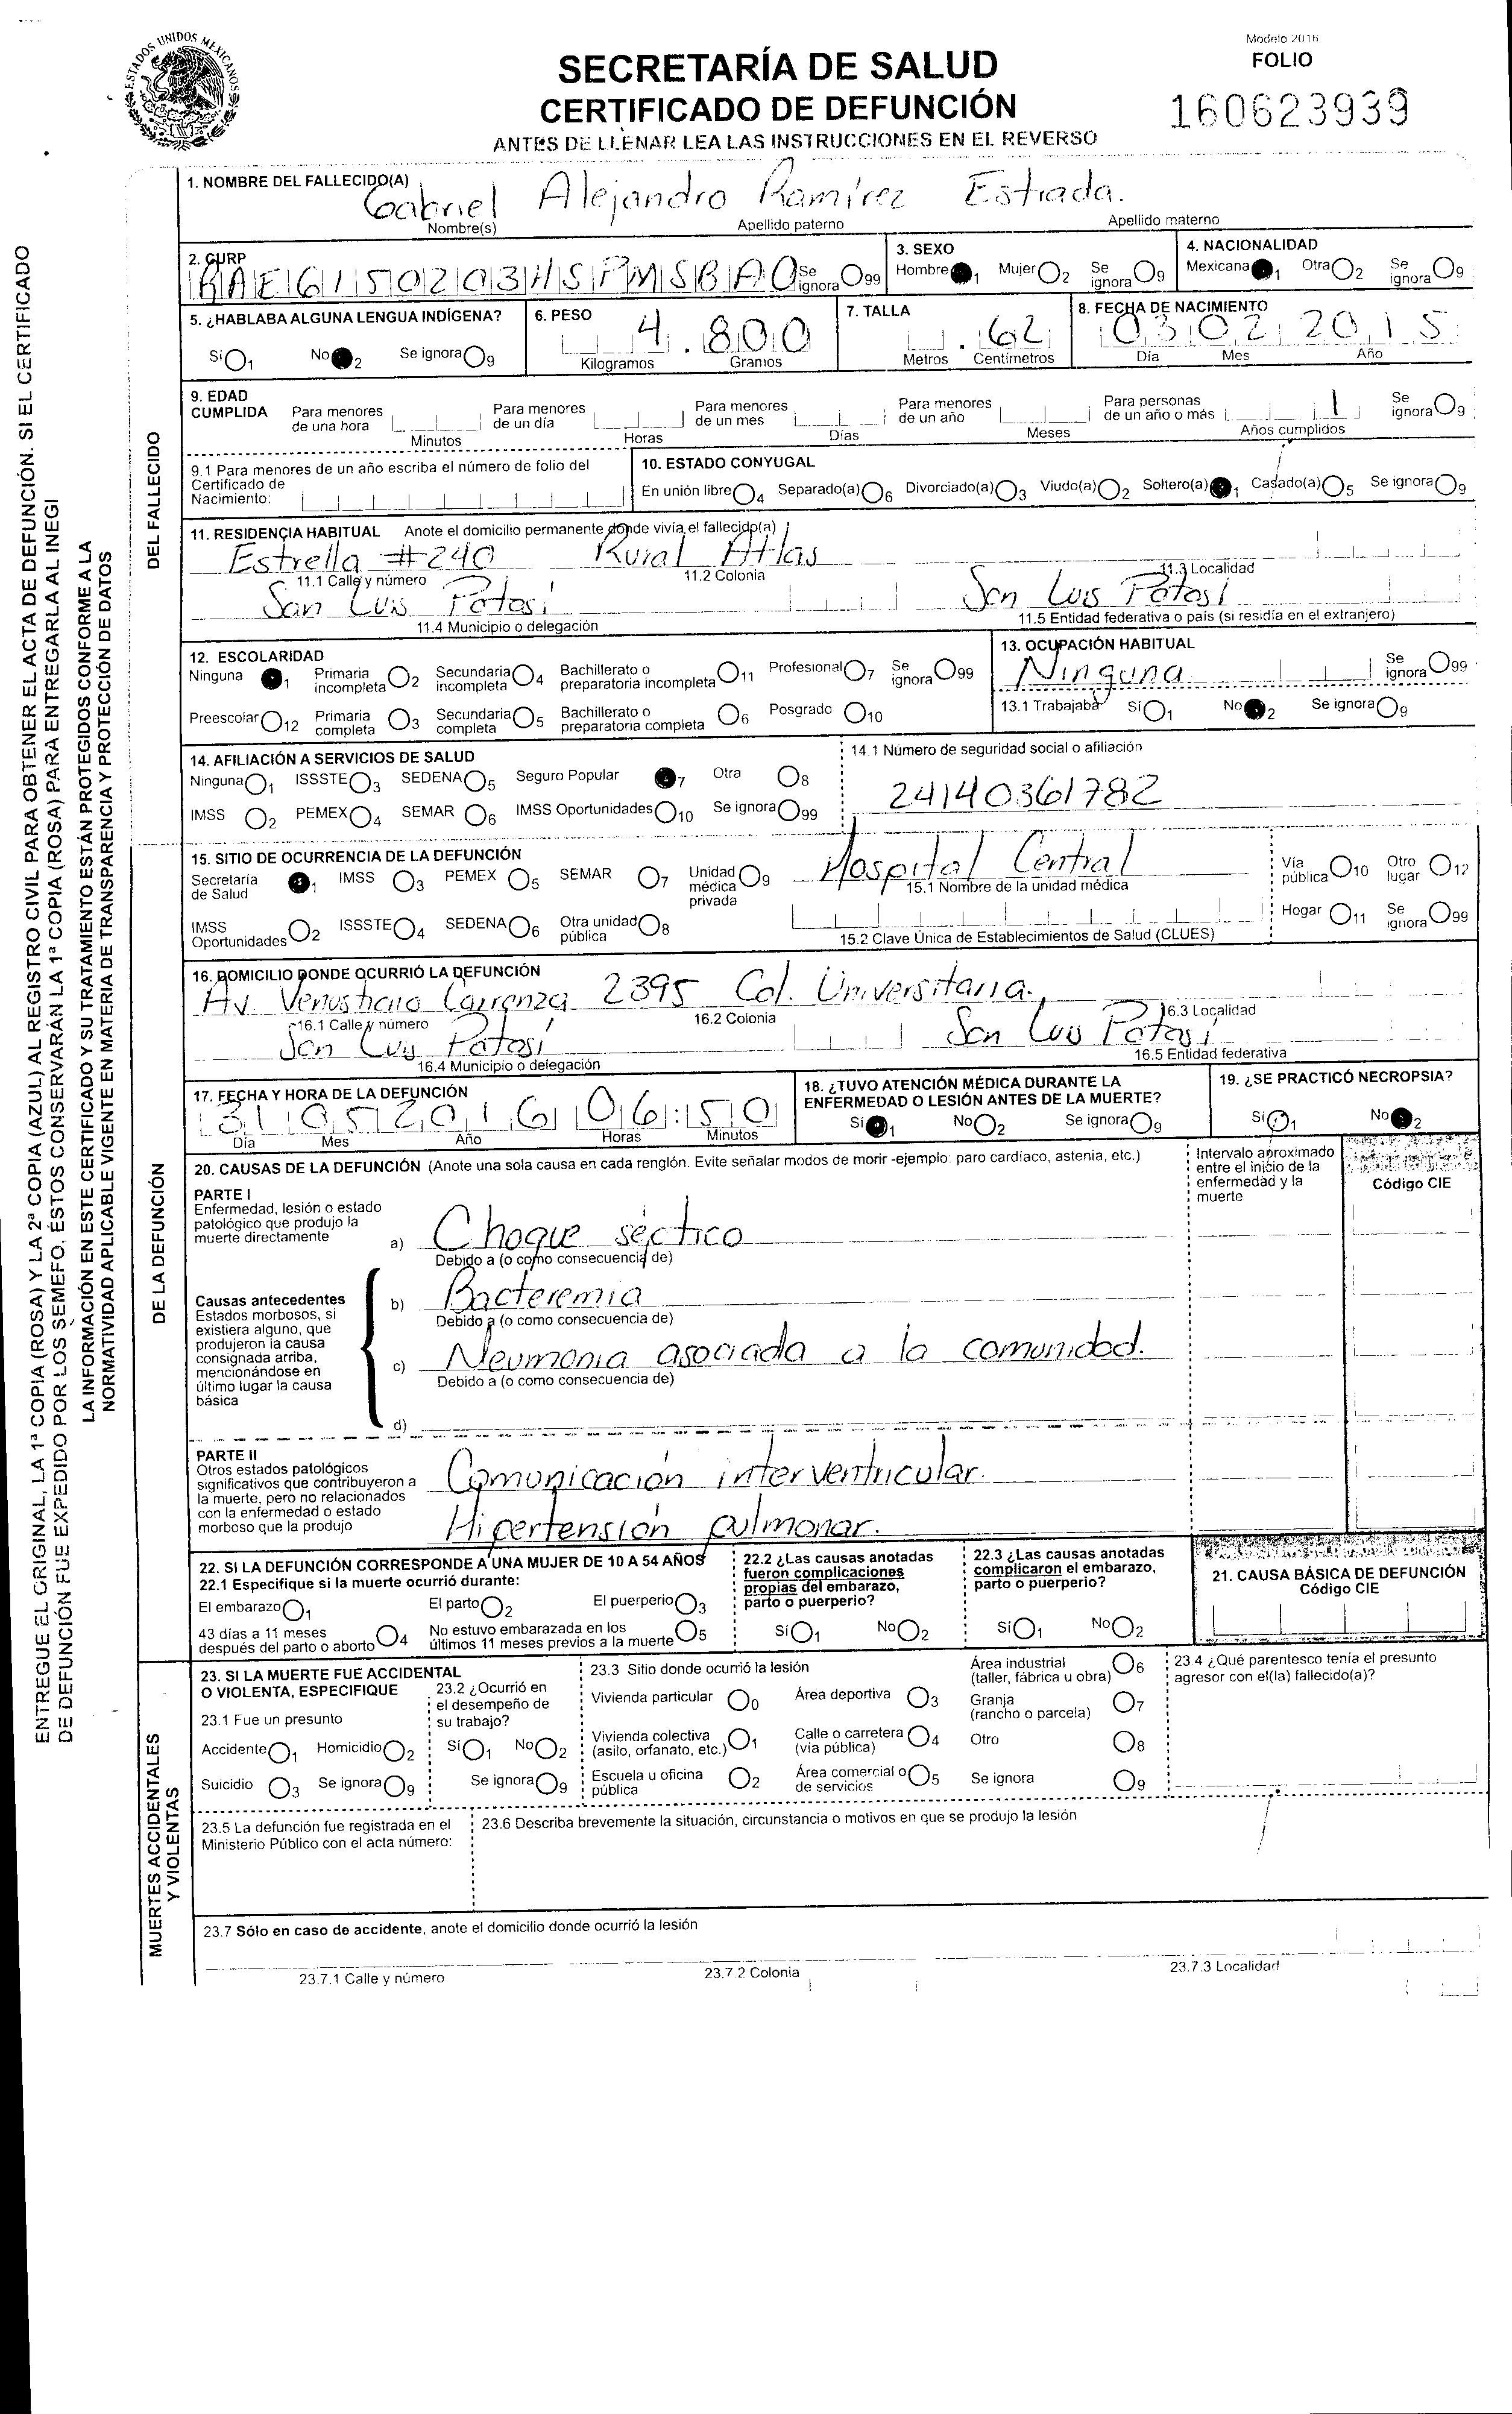 ESTADOS UNIDOS MEXICANOS
Modelo 2016
FOLIO
160623939
SECRETARÍA DE SALUD
CERTIFICADO DE DEFUNCIÓN
ANTES DE LLENAR LEA LAS INSTRUCCIONES EN EL REVERSO
ENTREGUE EL ORIGINAL, LA 1ª COPIA (ROSA) Y LA 2ª COPIA (AZUL) AL REGISTRO CIVIL PARA OBTENER EL ACTA DE DEFUNCIÓN. SI EL CERTIFICADO
DE DEFUNCIÓN FUE EXPEDIDO POR LOS SEMEFO, ÉSTOS CONSERVARÁN LA 1ª COPIA (ROSA) PARA ENTREGARLA AL INEGI
LA INFORMACIÓN EN ESTE CERTIFICADO Y SU TRATAMIENTO ESTÁN PROTEGIDOS CONFORME A LA
NORMATIVIDAD APLICABLE VIGENTE EN MATERIA DE TRANSPARENCIA Y PROTECCIÓN DE DATOS
DEL FALLECIDO
1. NOMBRE DEL FALLECIDO(A)
Gabriel Alejandro Ramírez Estrada.
Nombre(s) Apellido paterno Apellido materno
2. CURP
RAEG150203HSPMSBA0 Se ignora 99
3. SEXO
Hombre 1 Mujer 2 Se ignora 9
4. NACIONALIDAD
Mexicana 1 Otra 2 Se ignora 9
5. ¿HABLABA ALGUNA LENGUA INDÍGENA?
Sí 1 No 2 Se ignora 9
6. PESO
4.800
Kilogramos Gramos
7. TALLA
.62
Metros Centímetros
8. FECHA DE NACIMIENTO
03 02 2015
Día Mes Año
9. EDAD CUMPLIDA
Para menores de una hora Minutos
Para menores de un día Horas
Para menores de un mes Días
Para menores de un año Meses
Para personas de un año o más 1 Años cumplidos
Se ignora 9
9.1 Para menores de un año escriba el número de folio del
Certificado de
Nacimiento:
10. ESTADO CONYUGAL
En unión libre 4 Separado(a) 6 Divorciado(a) 3 Viudo(a) 2 Soltero(a) 1 Casado(a) 5 Se ignora 9
11. RESIDENCIA HABITUAL Anote el domicilio permanente donde vivía el fallecido(a)
Estrella #240 Rural Atlas
11.1 Calle y número 11.2 Colonia 11.3 Localidad
San Luis Potosí San Luis Potosí
11.4 Municipio o delegación 11.5 Entidad federativa o país (si residía en el extranjero)
12. ESCOLARIDAD
Ninguna 1 Primaria incompleta 2 Secundaria incompleta 4 Bachillerato o preparatoria incompleta 11 Profesional 7 Se ignora 99
Preescolar 12 Primaria completa 3 Secundaria completa 5 Bachillerato o preparatoria completa 6 Posgrado 10
13. OCUPACIÓN HABITUAL
Ninguna Se ignora 99
13.1 Trabajaba Sí 1 No 2 Se ignora 9
14. AFILIACIÓN A SERVICIOS DE SALUD
Ninguna 1 ISSSTE 3 SEDENA 5 Seguro Popular 7 Otra 8
IMSS 2 PEMEX 4 SEMAR 6 IMSS Oportunidades 10 Se ignora 99
14.1 Número de seguridad social o afiliación
24140361782
DE LA DEFUNCIÓN
15. SITIO DE OCURRENCIA DE LA DEFUNCIÓN
Secretaria de Salud 1 IMSS 3 PEMEX 5 SEMAR 7 Unidad médica privada 9
IMSS Oportunidades 2 ISSSTE 4 SEDENA 6 Otra unidad pública 8
Hospital Central
15.1 Nombre de la unidad médica
15.2 Clave Única de Establecimientos de Salud (CLUES)
Vía pública 10 Otro lugar 12
Hogar 11 Se ignora 99
16. DOMICILIO DONDE OCURRIÓ LA DEFUNCIÓN
Av. Venustiano Carranza 2395 Col. Universitaria.
16.1 Calle y número 16.2 Colonia 16.3 Localidad
San Luis Potosí San Luis Potosí
16.4 Municipio o delegación 16.5 Entidad federativa
17. FECHA Y HORA DE LA DEFUNCIÓN
31 05 2016 06:50
Día Mes Año Horas Minutos
18. ¿TUVO ATENCIÓN MÉDICA DURANTE LA
ENFERMEDAD O LESIÓN ANTES DE LA MUERTE?
Sí 1 No 2 Se ignora 9
19. ¿SE PRACTICÓ NECROPSIA?
Sí 1 No 2
20. CAUSAS DE LA DEFUNCIÓN (Anote una sola causa en cada renglón. Evite señalar modos de morir -ejemplo: paro cardíaco, astenia, etc.)
Intervalo aproximado
entre el inicio de la
enfermedad y la
muerte
Código CIE
PARTE I
Enfermedad, lesión o estado
patológico que produjo la
muerte directamente
a) Choque séptico
Debido a (o como consecuencia de)
Causas antecedentes
Estados morbosos, si
existiera alguno, que
produjeron la causa
consignada arriba,
mencionándose en
último lugar la causa
básica
b) Bacteremia
Debido a (o como consecuencia de)
c) Neumonia asociada a la comunidad.
Debido a (o como consecuencia de)
d)
PARTE II
Otros estados patológicos
significativos que contribuyeron a
la muerte, pero no relacionados
con la enfermedad o estado
morboso que la produjo
Comunicación interventricular.
Hipertensión pulmonar.
22. SI LA DEFUNCIÓN CORRESPONDE A UNA MUJER DE 10 A 54 AÑOS
22.1 Especifique si la muerte ocurrió durante:
El embarazo 1 El parto 2 El puerperio 3
43 días a 11 meses después del parto o aborto 4 No estuvo embarazada en los últimos 11 meses previos a la muerte 5
22.2 ¿Las causas anotadas
fueron complicaciones
propias del embarazo,
parto o puerperio?
Sí 1 No 2
22.3 ¿Las causas anotadas
complicaron el embarazo,
parto o puerperio?
Sí 1 No 2
21. CAUSA BÁSICA DE DEFUNCIÓN
Código CIE
MUERTES ACCIDENTALES
Y VIOLENTAS
23. SI LA MUERTE FUE ACCIDENTAL
O VIOLENTA, ESPECIFIQUE
23.1 Fue un presunto
Accidente 1 Homicidio 2
Suicidio 3 Se ignora 9
23.2 ¿Ocurrió en
el desempeño de
su trabajo?
Sí 1 No 2
Se ignora 9
23.3 Sitio donde ocurrió la lesión
Vivienda particular 0 Área deportiva 3
Vivienda colectiva (asilo, orfanato, etc.) 1 Calle o carretera (vía pública) 4
Escuela u oficina pública 2 Área comercial o de servicios 5
Área industrial (taller, fábrica u obra) 6
Granja (rancho o parcela) 7
Otro 8
Se ignora 9
23.4 ¿Qué parentesco tenía el presunto
agresor con el(la) fallecido(a)?
23.5 La defunción fue registrada en el
Ministerio Público con el acta número:
23.6 Describa brevemente la situación, circunstancia o motivos en que se produjo la lesión
23.7 Sólo en caso de accidente, anote el domicilio donde ocurrió la lesión
23.7.1 Calle y número 23.7.2 Colonia 23.7.3 Localidad